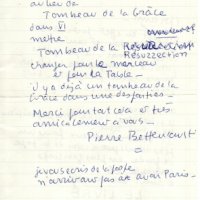 au lieu de
Tombeau de la Grâce
dans VI
mettre
Tombeau de la Résurrection
changer pour le morceau
et pour la Table.
il y a déjà un tombeau de la
Grâce dans une des parties.
Merci pour tout cela et très
amicalement à vous.
Pierre Bettencourt
je vous écris de la poste
n'arrivant pas à avoir Paris.